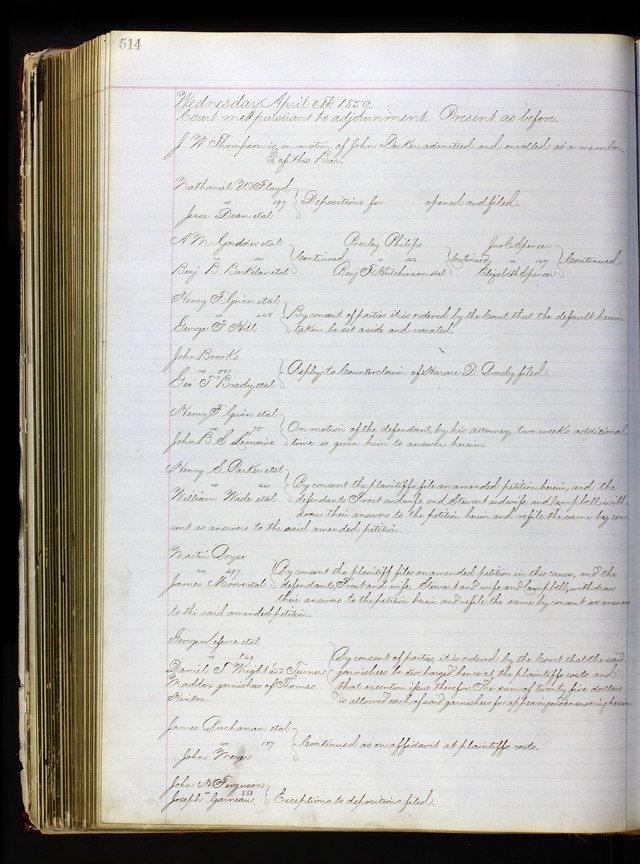 514
Wednesday April 6th 1859.
Court met pursuant to adjournment. Present as before.
J. W. Thompson is, on motion of John Decker, admitted and enrolled as a member
of this Bar.
Nathaniel W Floyd
vs 197 Depositions for opened and filed.
Jesse Dean etal
N M Gardner etal Presley Philips Jno C Spencer
vs Continued vs Continued vs Continued
Benj B Barkelow etal Benj F Hutchinson etal Elizabeth Spencer
Henry F Guion etal
vs By consent of parties it is ordered by the Court that the default herein
George F Hill taken be set aside and vacated.
John Brooks
vs 551 Reply to Counterclaim of Horace D. Brady filed.
Geo T Brady etal
Henry F Guion etal
vs On motion of the defendant by his attorney, two weeks additional
John B S Lemoine time is given him to answer herein.
Henry S Parker etal
vs By consent the plaintiffs file an amended petition herein, and the
William Wade etal defendants Frost and wife and Stewart and wife and Campbell with
draw their answers to the petition herein and refile the same by con
sent as answers to the said amended petition.
Martin Dryse
vs 497 By consent the plaintiff files an amended petition in this cause, and the
James Moore etal defendants, Frost and wife, Stewart and wife and Campbell, withdraw
their answers to the petition herein and refile the same by consent as answers
to the said amended petition.
George Lefevre etal
vs By consent of parties, it is ordered by the Court that the said
Daniel T. Wright and Turner garnishees be discharged hence at the plaintiffs costs and
Madden garnishees of Thomas that execution issue therefor. The sum of twenty five dollars
Hinton is allowed each of said garnishees for appearing and answering herein
James Buchanan etal
vs 187 Continued as on affidavit at plaintiffs costs.
John Meyer
John N Ferguson
vs 351 Exceptions to depositions filed.
Joseph Garneau